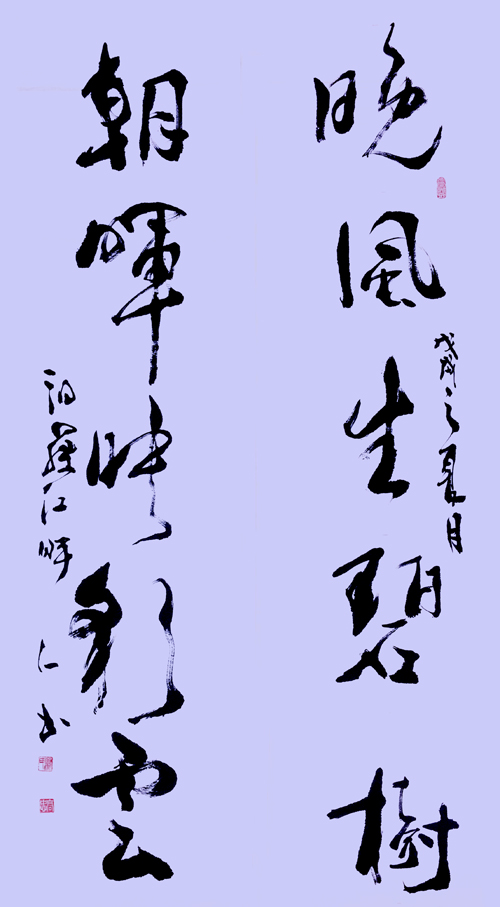 晚風生碧樹
戊戌之夏月
朝暉映彩雲
汨羅江畔
仁書